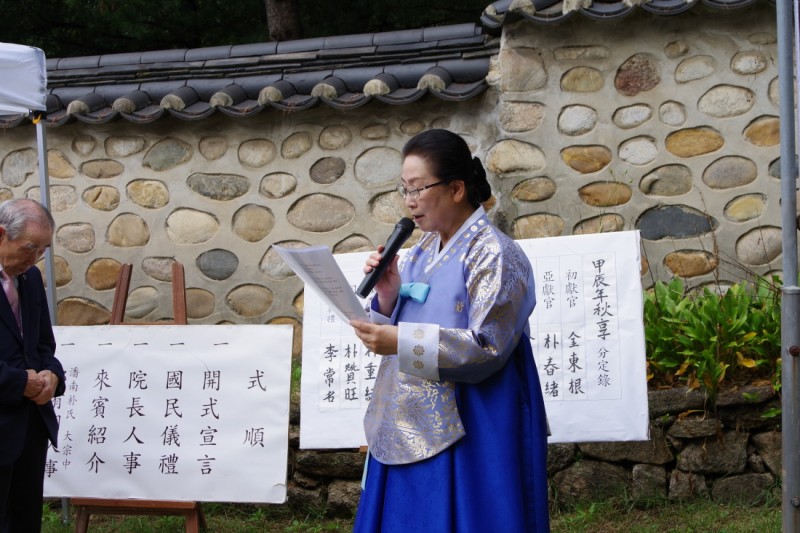 式順
一 開式宣言
一 國民儀禮
一 院長人事
一 來賓紹介
一 潘南朴氏 大宗中 人事
甲辰年秋享 分定錄
初獻官 金東根
亞獻官 朴春緖
朴重
禮 李常名